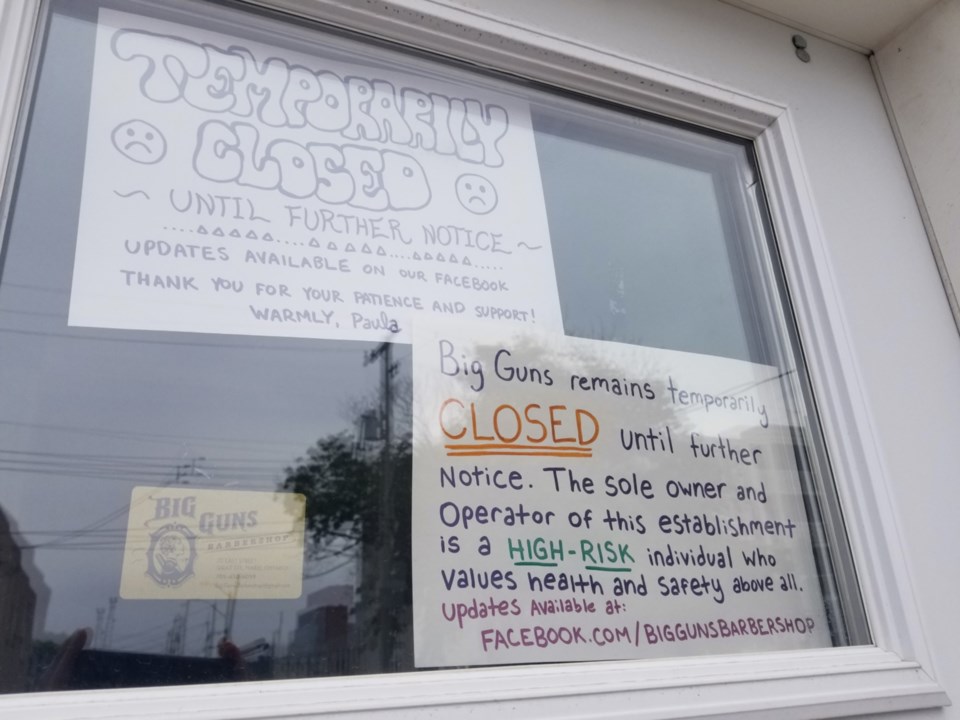 TEMPORARILY
CLOSED
~ UNTIL FURTHER NOTICE ~
UPDATES AVAILABLE ON OUR FACEBOOK
THANK YOU FOR YOUR PATIENCE AND SUPPORT!
WARMLY, Paula
Big Guns remains temporarily
CLOSED until further
Notice. The sole owner and
Operator of this establishment
is a HIGH-RISK individual who
values health and safety above all.
Updates Available at:
FACEBOOK.COM/BIGGUNSBARBERSHOP
BIG
GUNS
BARBERSHOP